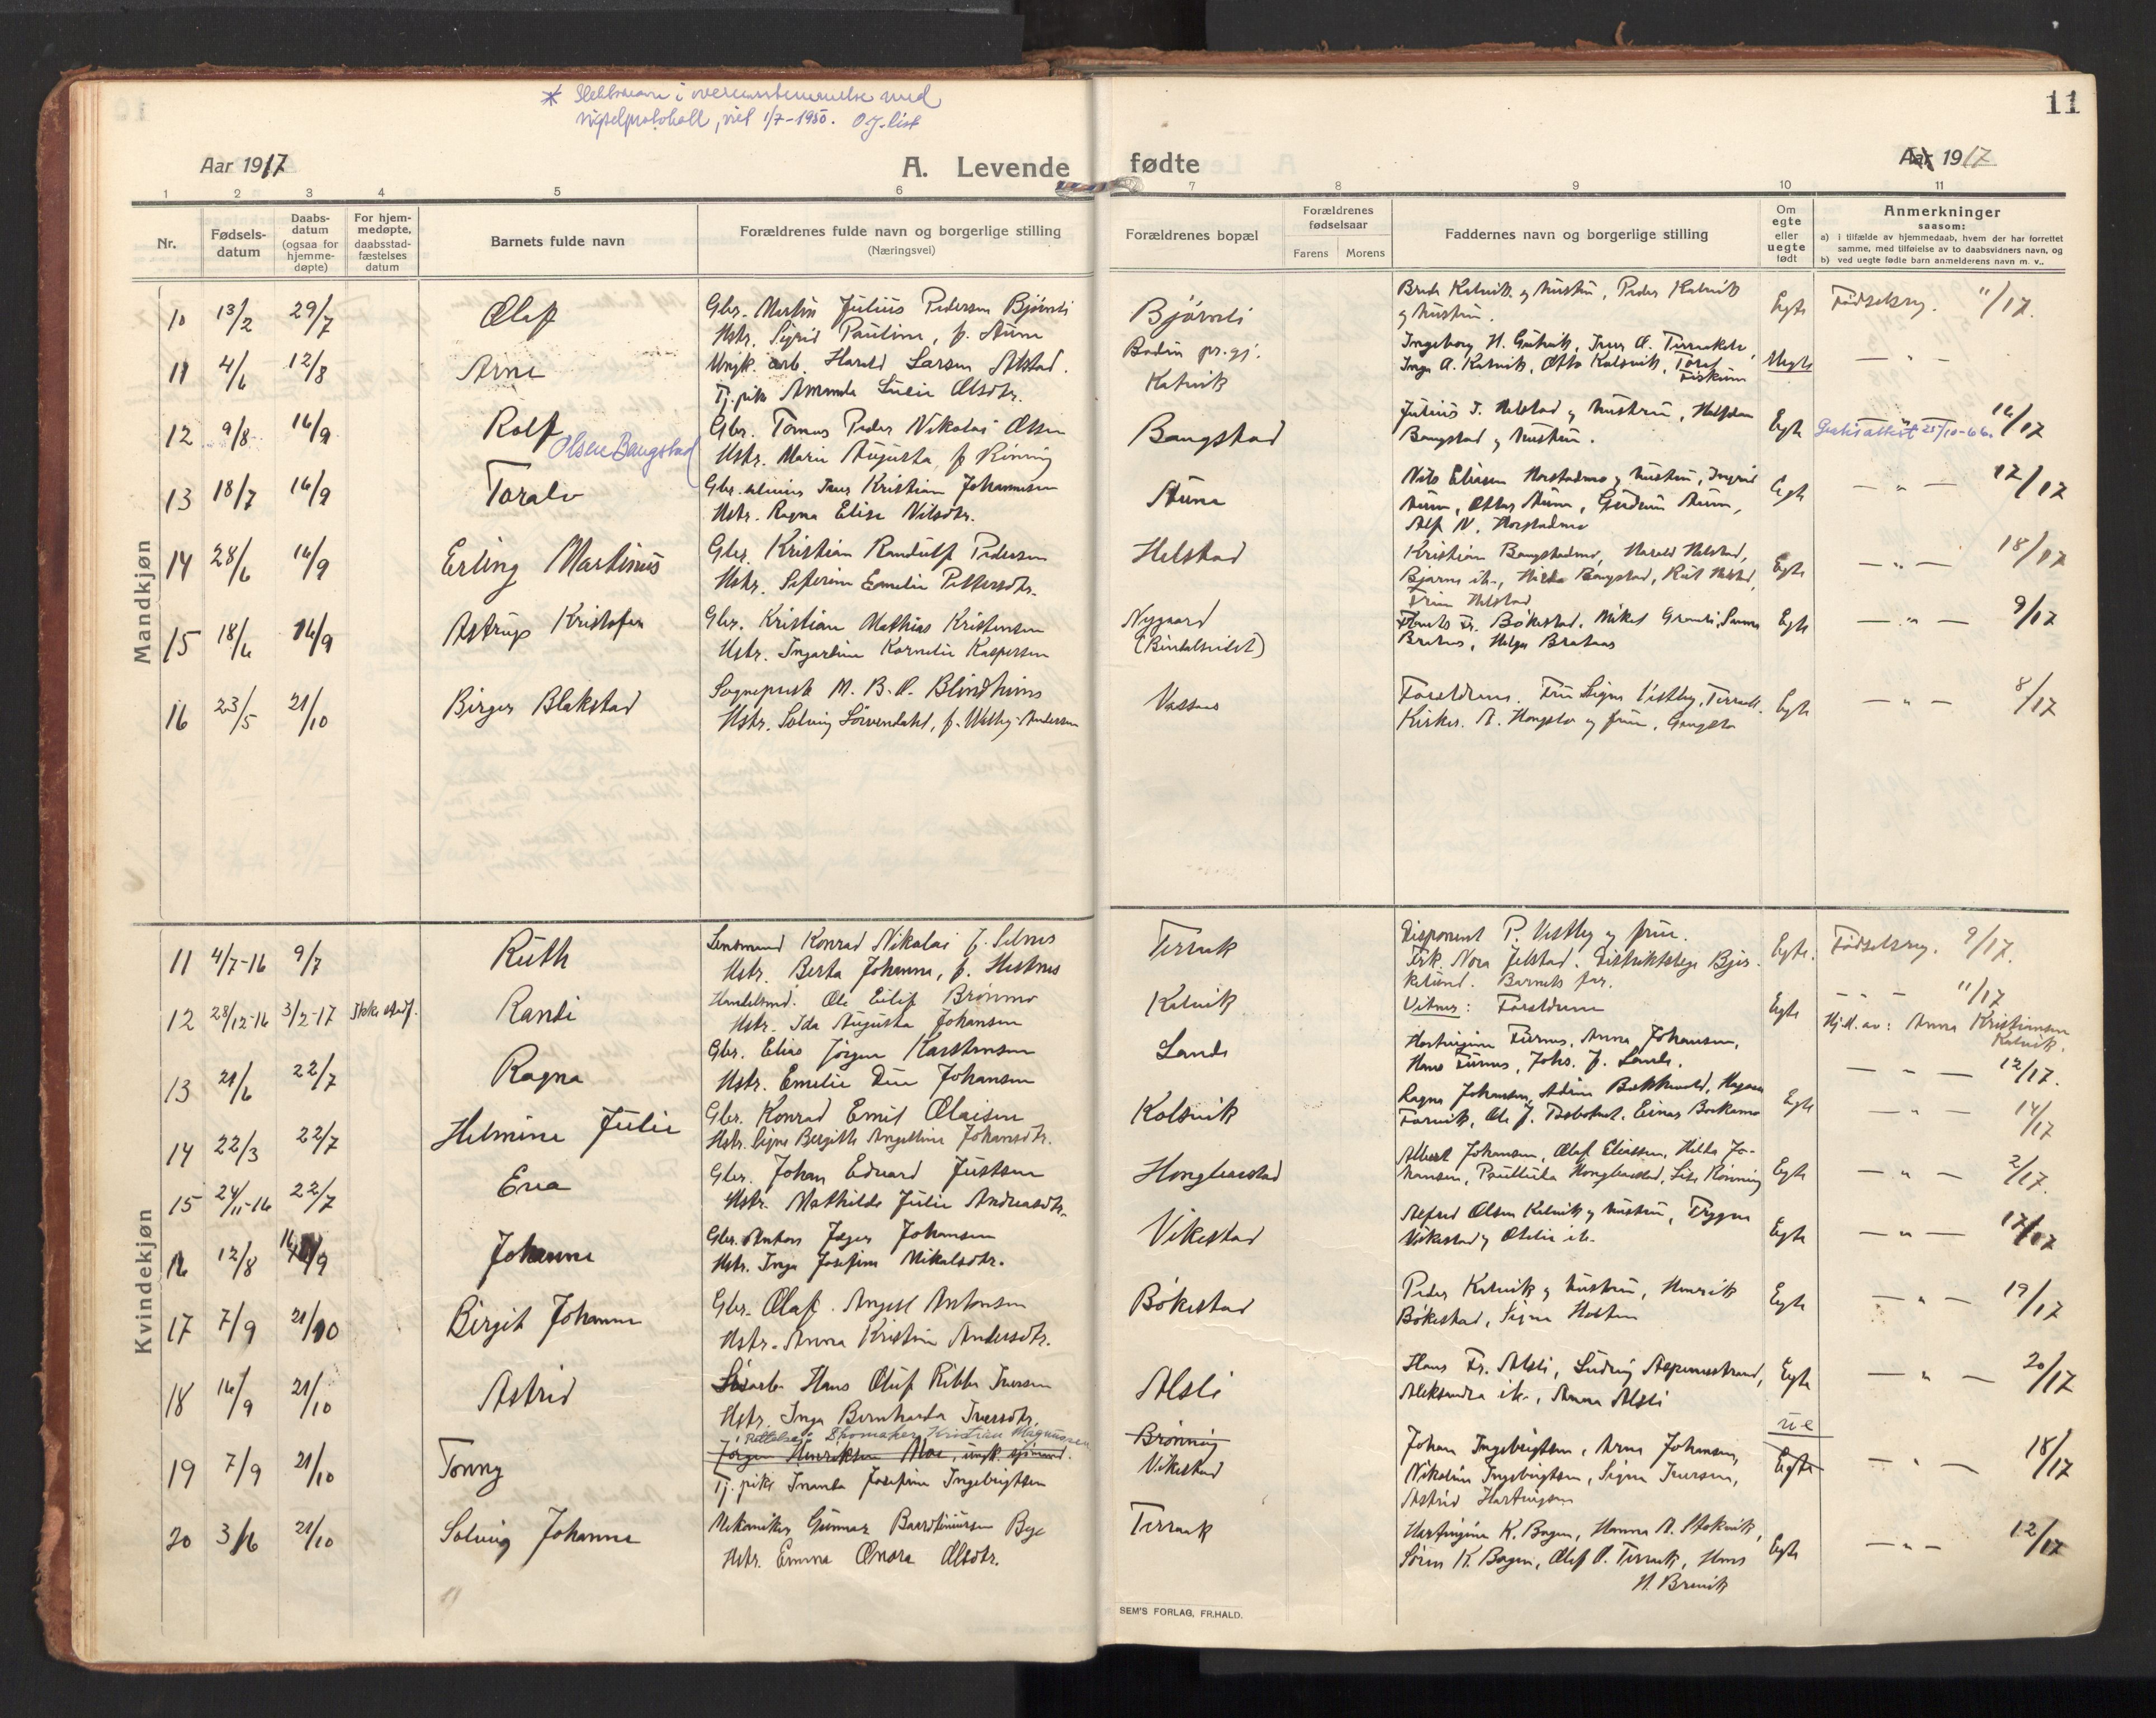 11
* Slektsnavn i overensstemmelse med
vigselprotokoll, viel 1/7-1950. O.J. list
Aar 1917
A. Levende fødte
Aar 1917
1 2 3 4 5 6 7 8 9 10 11
Nr.
Fødsels-
datum
Daabs-
datum
(ogsaa for
hjemme-
døpte)
For hjem-
medøpte,
daabsstad-
fæstelses
datum
Barnets fulde navn
Forældrenes fulde navn og borgerlige stilling
(Næringsvei)
Forældrenes bopæl
Forældrenes
fødselsaar
Farens Morens
Faddernes navn og borgerlige stilling
Om
egte
eller
uegte
født
Anmerkninger
saasom:
a) i tilfælde av hjemmedaab, hvem der har forrettet
samme, med tilføielse av to daabsvidners navn, og
b) ved uegte fødte barn anmelderens navn m. v..
Mandkjøn
10 13/2 29/7 Olaf
Gbr. Martin Julius Pedersen Bjørnli
Hstr. Sigrid Pauline, f. Aune
Bjørnli
Brede Kalvik og hustru, Peder Kalvik
og hustru.
Egte Fødselsreg. 11/17.
11 4/6 12/8 Arne
Ungk. arb. Harald Larsen Alstad.
Tj. pike Amanda Lucie Olsdtr.
Bodin pr.gj.
Kalvik
Inga A. Kalvik, Otto Kalvik, Toraf
Fiskum
Uegte — " —
12 9/8 16/9 Rolf Olsen Bangstad
Gbr. Tomas Peder Nikolai Olsen
Hstr. Marie Augusta, f. Rønning
Bangstad
Julius J. Helstad og hustru, Halfdan
Bangstad og hustru.
Egte Gratis attest 25/10-66. 16/17
13 18/7 16/9 Toralv
Jens Kristian Johannesen
Hstr. Ragna Elise Nilsdtr.
Aune
Nils Eliasen Horstadmo og hustru, Ingrid
Aune, Ottar Aune, Gudrun Aune,
Alf N. Horstadmo
Egte — " — 17/17
14 28/6 16/9 Erling Martinus
Gbr. Kristian Randulf Pedersen
Hstr. Seferine Emelie Pettersdtr.
Helstad
Kristian Bangstadmo, Harald Helstad,
Bjarne ib., Hilda Bangstad, Rut Helstad
Egte — " — 18/17
15 18/6 16/9 Astrup Kristofer
Gbr. Kristian Mathias Kristensen
Hstr. Ingardine Kornelie Kaspersen
Nygaard
(Bindalseidet)
Brataas, Helga Brataas
Egte — " — 9/17
16 23/5 21/10 Birger Blakstad
Sogneprest M. B. A. Blindheims
Hstr. Solveig Sørvendahl, f. Westby-Andersen
Vassaas
Forældrene. Fru Signe Vistby, Terraak.
Kirkes. A. Hongslo og frue, Gangstø
Egte — " — 8/17
Kvindekjøn
11 4/7-16 9/7 Ruth
Lensmand Konrad Nikolai J. Selnes
Hstr. Berta Johanne, f. Hestnes
Terraak
Disponent P. Vestby og frue.
Frk. Nora Jelstad. Distriktslæge Bjer-
kelund. Barnets far.
Egte. Fødselsreg. 9/17.
12 28/12-16 3/2-17 Ikke stadf. Randi
Handelsmd. Ole Eilif Brønmo
Hstr. Ida Augusta Johansen
Kalvik
Vitner: Forældrene
Egte — " — 11/17
Hj.d. av: Anna Kristiansen
Kalvik.
13 21/6 22/7 Ragna
Gbr. Elias Jørgen Karstensen
Hstr. Emelie Due Johansen
Lande
Hartvigine Furnes, Anna Johansen,
Hans Furnes, Johs. J. Lande.
— " — 12/17.
14 22/3 22/7 Helmine Julie
Gbr. Konrad Emil Olaisen
Hstr. Signe Bergitte Angelline Johansdtr.
Kolsvik
Egte — " — 14/17
15 24/11-16 22/7 Eva
Gbr. Johan Edvard Justsen
Hstr. Mathilde Julie Andreasdtr.
Hongbarstad
Albert Johansen, Olaf Eliassen, Hilda Jo-
hansen, Paulluka Hongbarstad, Lise Rønning
Egte — " — 2/17.
16 12/8 16/9 Johanne
Gbr. Anton Jæger Johansen
Hstr. Inga Josefine Mikalsdtr.
Vikestad
Alfred Olsen Kalvik og hustru, Trygve
Vikestad og Otelie ib.
Egte — " — 17/17
17 7/9 21/10 Birgit Johanne
Gbr. Olaf Angell Antonsen
Hstr. Anna Kristine Andersdtr.
Bøkestad
Peder Kalvik og hustru, Henrik
Bøkestad, Signe Holten
Egte — " — 19/17
18 16/9 21/10 Astrid
Hans Oluf Ribber Iversen
Hstr. Inga Bernharda Iversdtr.
Alsli
Hans Fr. Alsli, Ludvig Aspenesstrand,
Aleksandra ib., Anna Alsli
Egte — " — 20/17
19 7/9 21/10 Tonny
Rettelse: Skomaker Kristian Magnussen
Jørgen Henriksen Moe, ungk. sjømand.
Tj. pike Inanda Josefine Ingebrigtsen
Brønning
Vikestad
Johan Ingebrigtsen, Arne Johansen,
Nikoline Ingebrigtsen, Signe Iversen,
Astrid Hartvigsen
ue
Egte — " — 18/17
20 3/6 21/10 Solveig Johanne
Mekaniker Gunnar Baardtinussen Bye
Hstr. Emma Onora Olsdtr.
Terraak
Hartvigine K. Bogen, Hanna A. Stokvik,
Søren K. Bogen, Olaf O. Terraak, Hans
H. Brevik
Egte — " — 12/17
SEM'S FORLAG, FR.HALD.